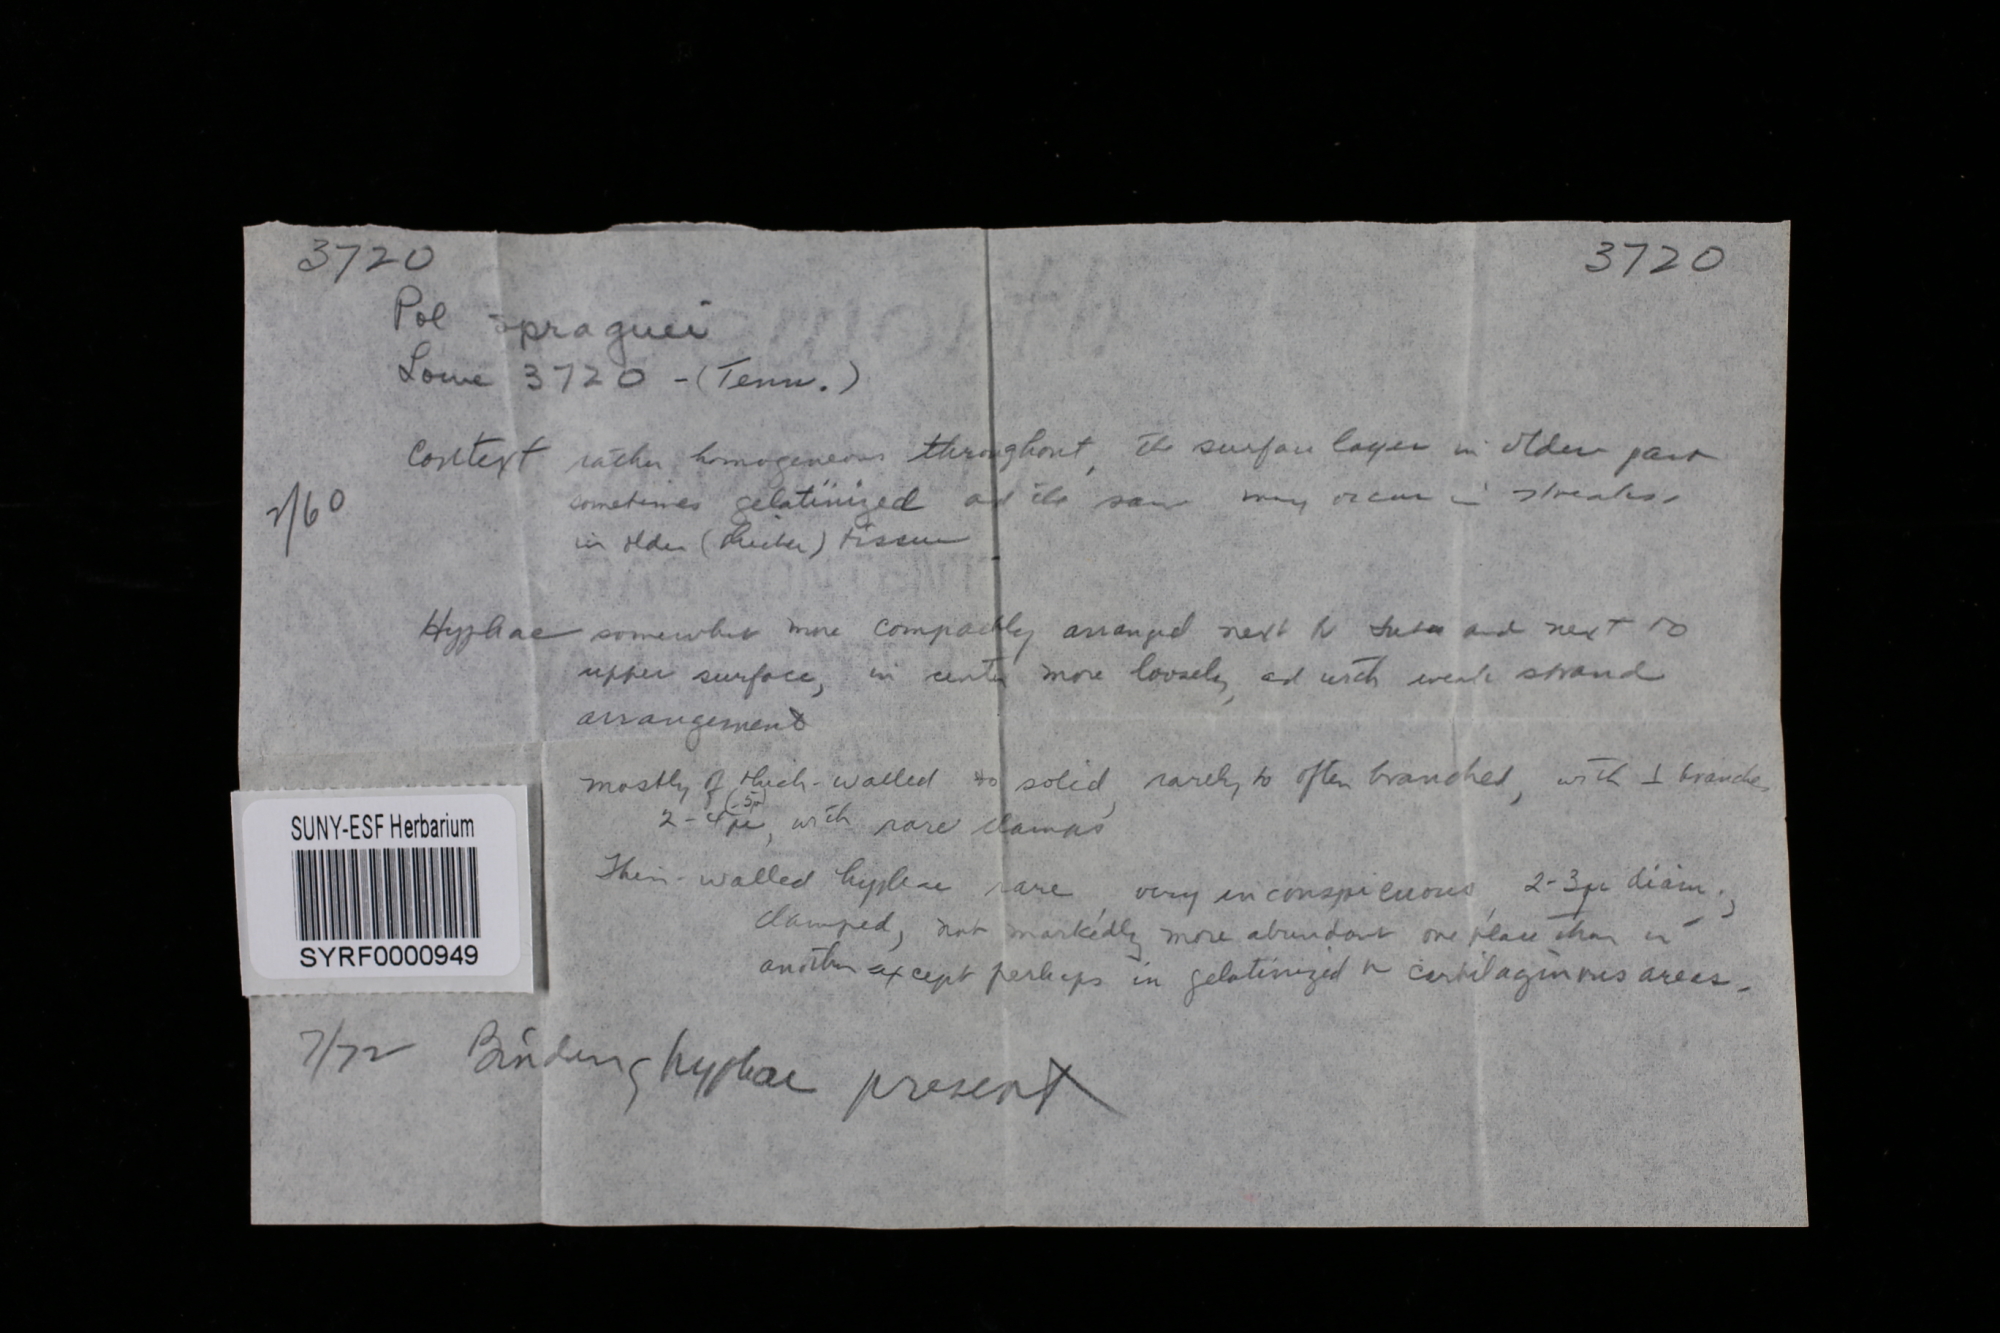 3720 3720
Pol spraguei
Lowe 3720 - (Tenn.)
Context rather homogeneous throughout, the surface layer in older part
2/60
sometimes gelatinized and the same may occur in streaks
in older (thicker) tissue
Hyphae somewhat more compactly arranged next to tubes and next to
upper surface, in center more loosely, and with weak strand
arrangement
mostly of thick-walled to solid, rarely to often branched, with ⊥ branches
2-4 (-5μ) μ, with rare clamps
Thin-walled hyphae rare, very inconspicuous, 2-3μ diam.,
clamped, not markedly more abundant one place than in
another except perhaps in gelatinized or cartilaginous areas.
SUNY-ESF Herbarium
SYRF0000949
7/72 Binding hyphae present